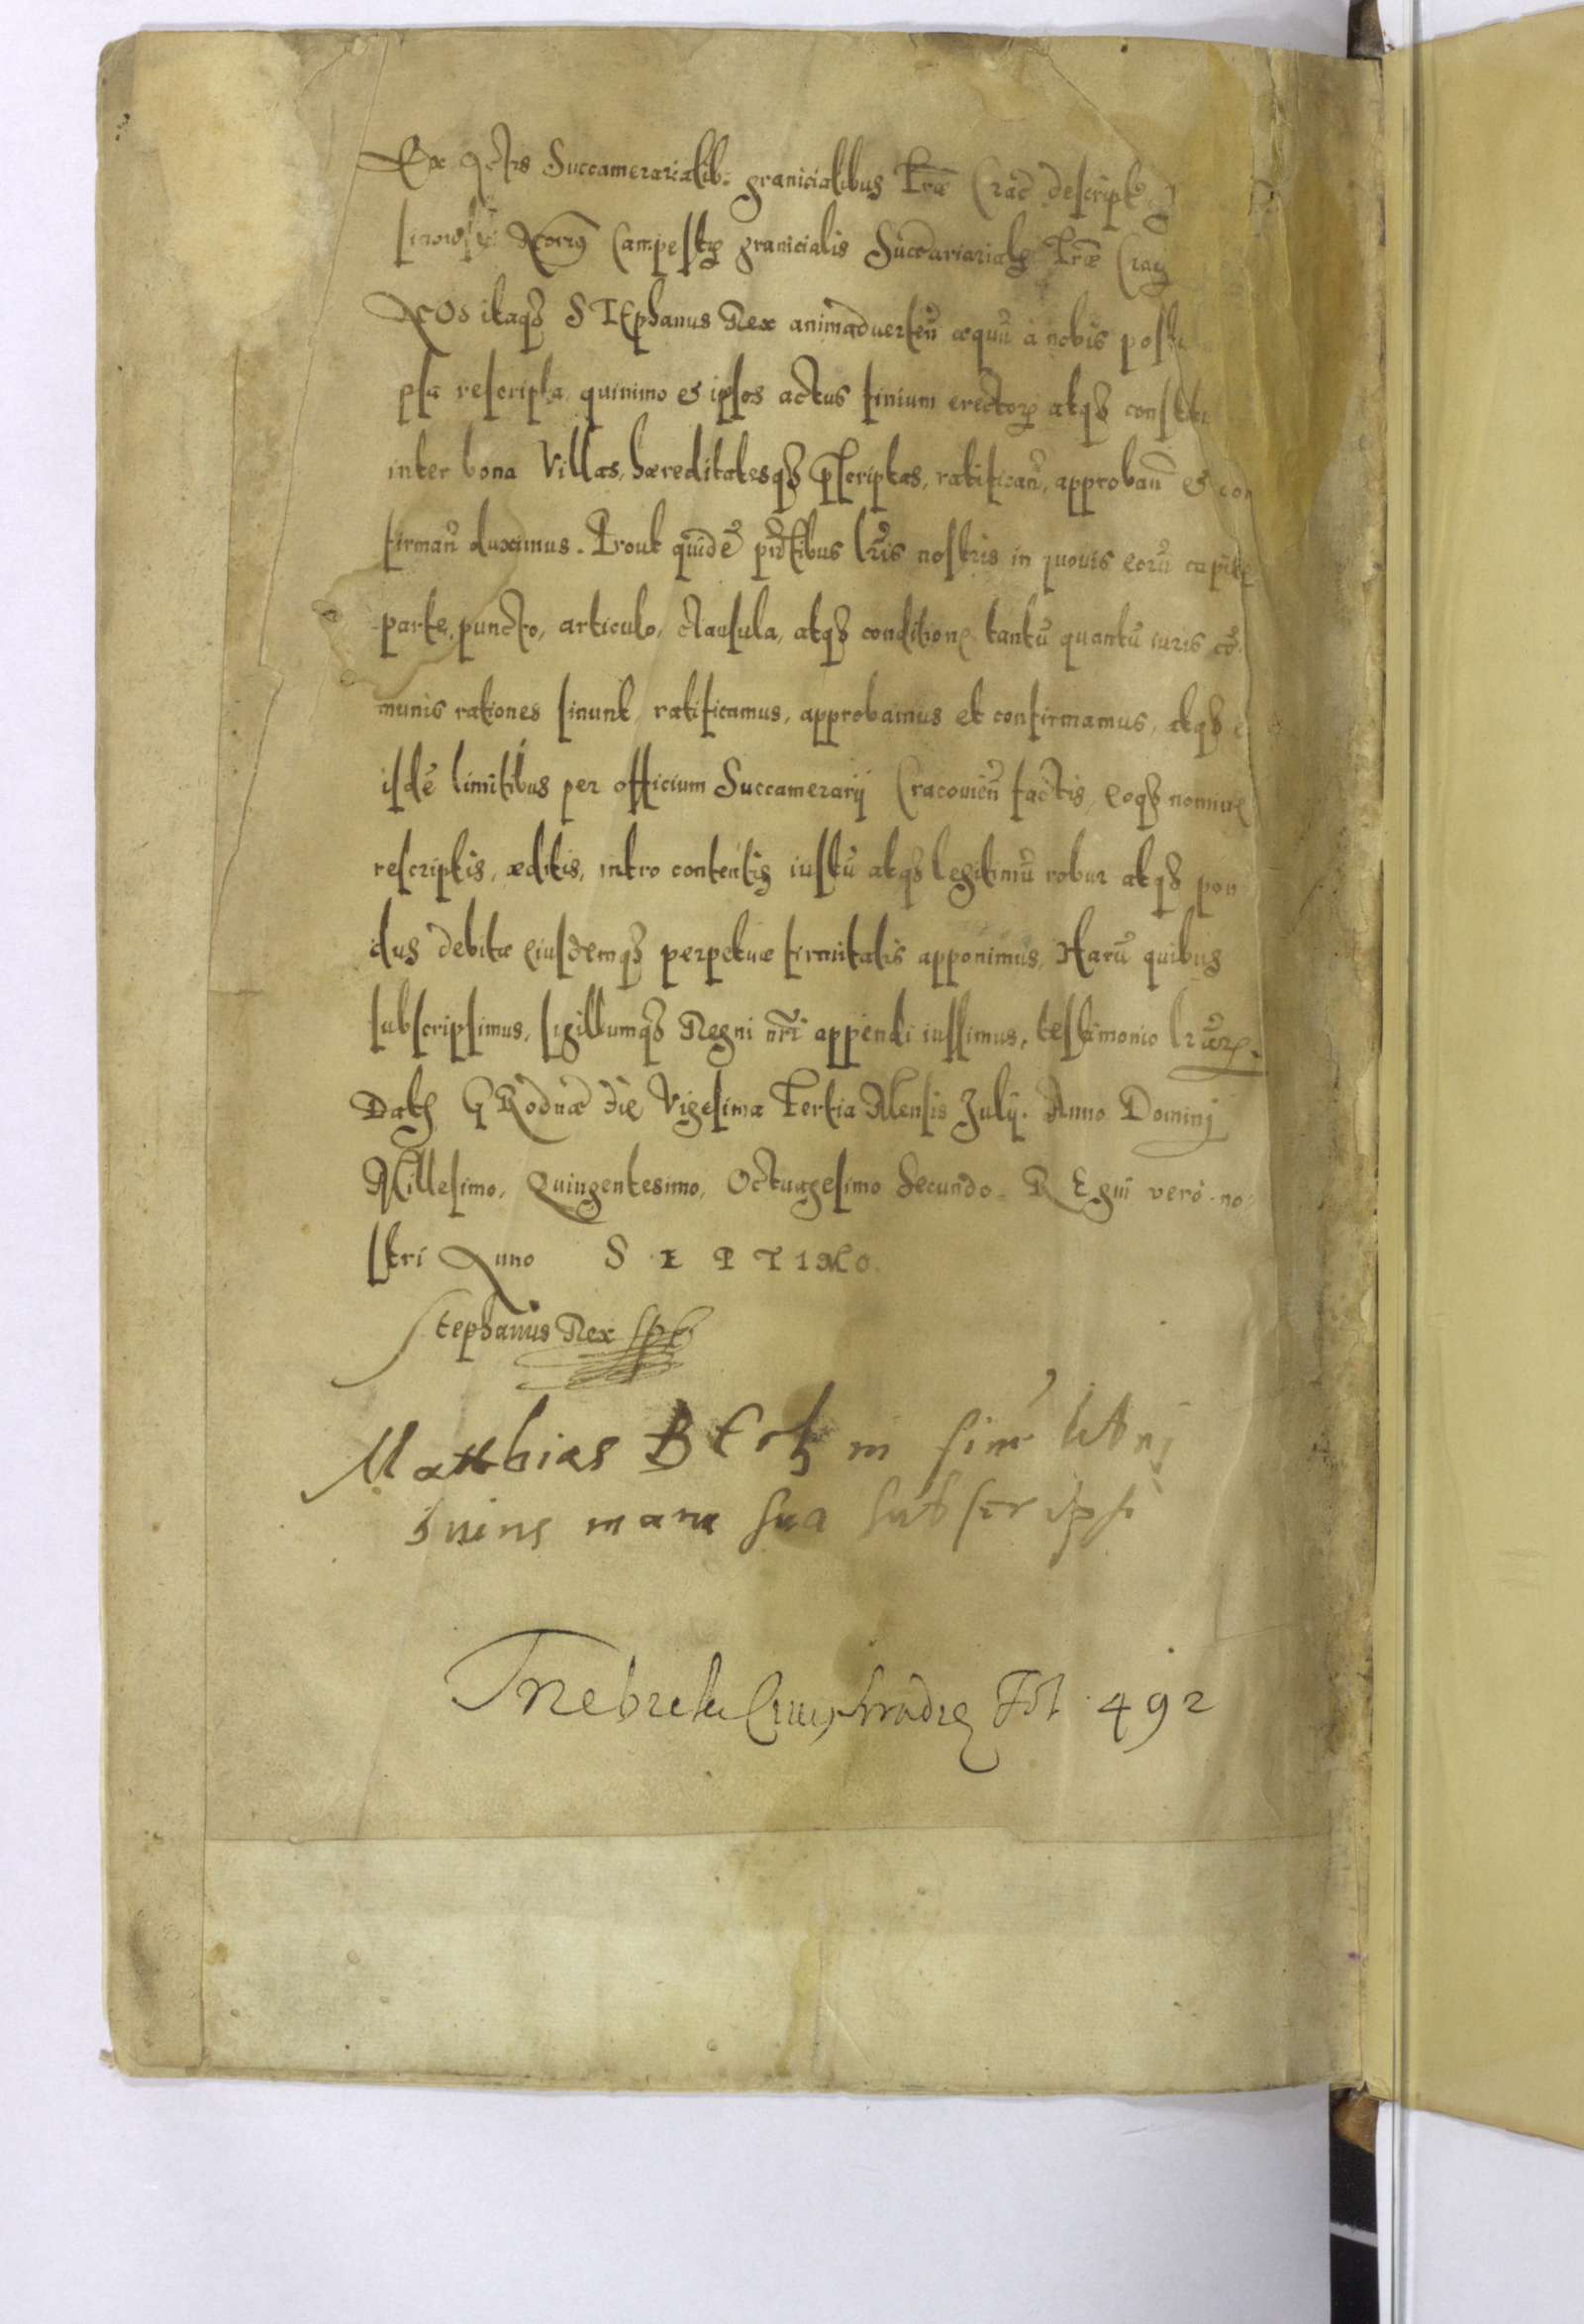 Ex Actis Succamerarialib: granicialibus Træ Crac descript
Campestr granicialis Træ Crac
NOs itaqȝ STEphanus Rex animaduerteñ æquũ a nobis postu
psa rescripta quinimo et ipsos actus finium erectorꝝ atqȝ constitu
inter bona Villas, hæreditatesqȝ pscriptas, ratificañ, approbañ et con
firmañ duximus. Prout quidẽ pñtibus lr̃is nostris in quouis eorũ capite
parte, puncto, articulo, clausula, atqȝ conditione tantũ quantũ iuris cõ
munis rationes sinunt ratificamus, approbamus et confirmamus, atqȝ
isdẽ limitibus per officium Succamerarij Cracouieñ factis, eoqȝ nomine
rescriptis, æditis, intro contentis iustũ atqȝ legitimũ robur atqȝ pon
dus debitæ eiusdemqȝ perpetuæ firmitatis apponimus, Harũ quibus
subscripsimus, sigillumqȝ Regni nr̃i appendi iussimus, testimonio lr̃arꝝ.
Datꝫ GRodnæ die Vigesima Tertia Mensis Julij. Anno Dominj
Millesimo, Quingentesimo, Octuagesimo Secundo. REgni vero no
stri Anno SEPTIMO.
Stephanus Rex
Matthias
manu sua subscripsi
Fol 492